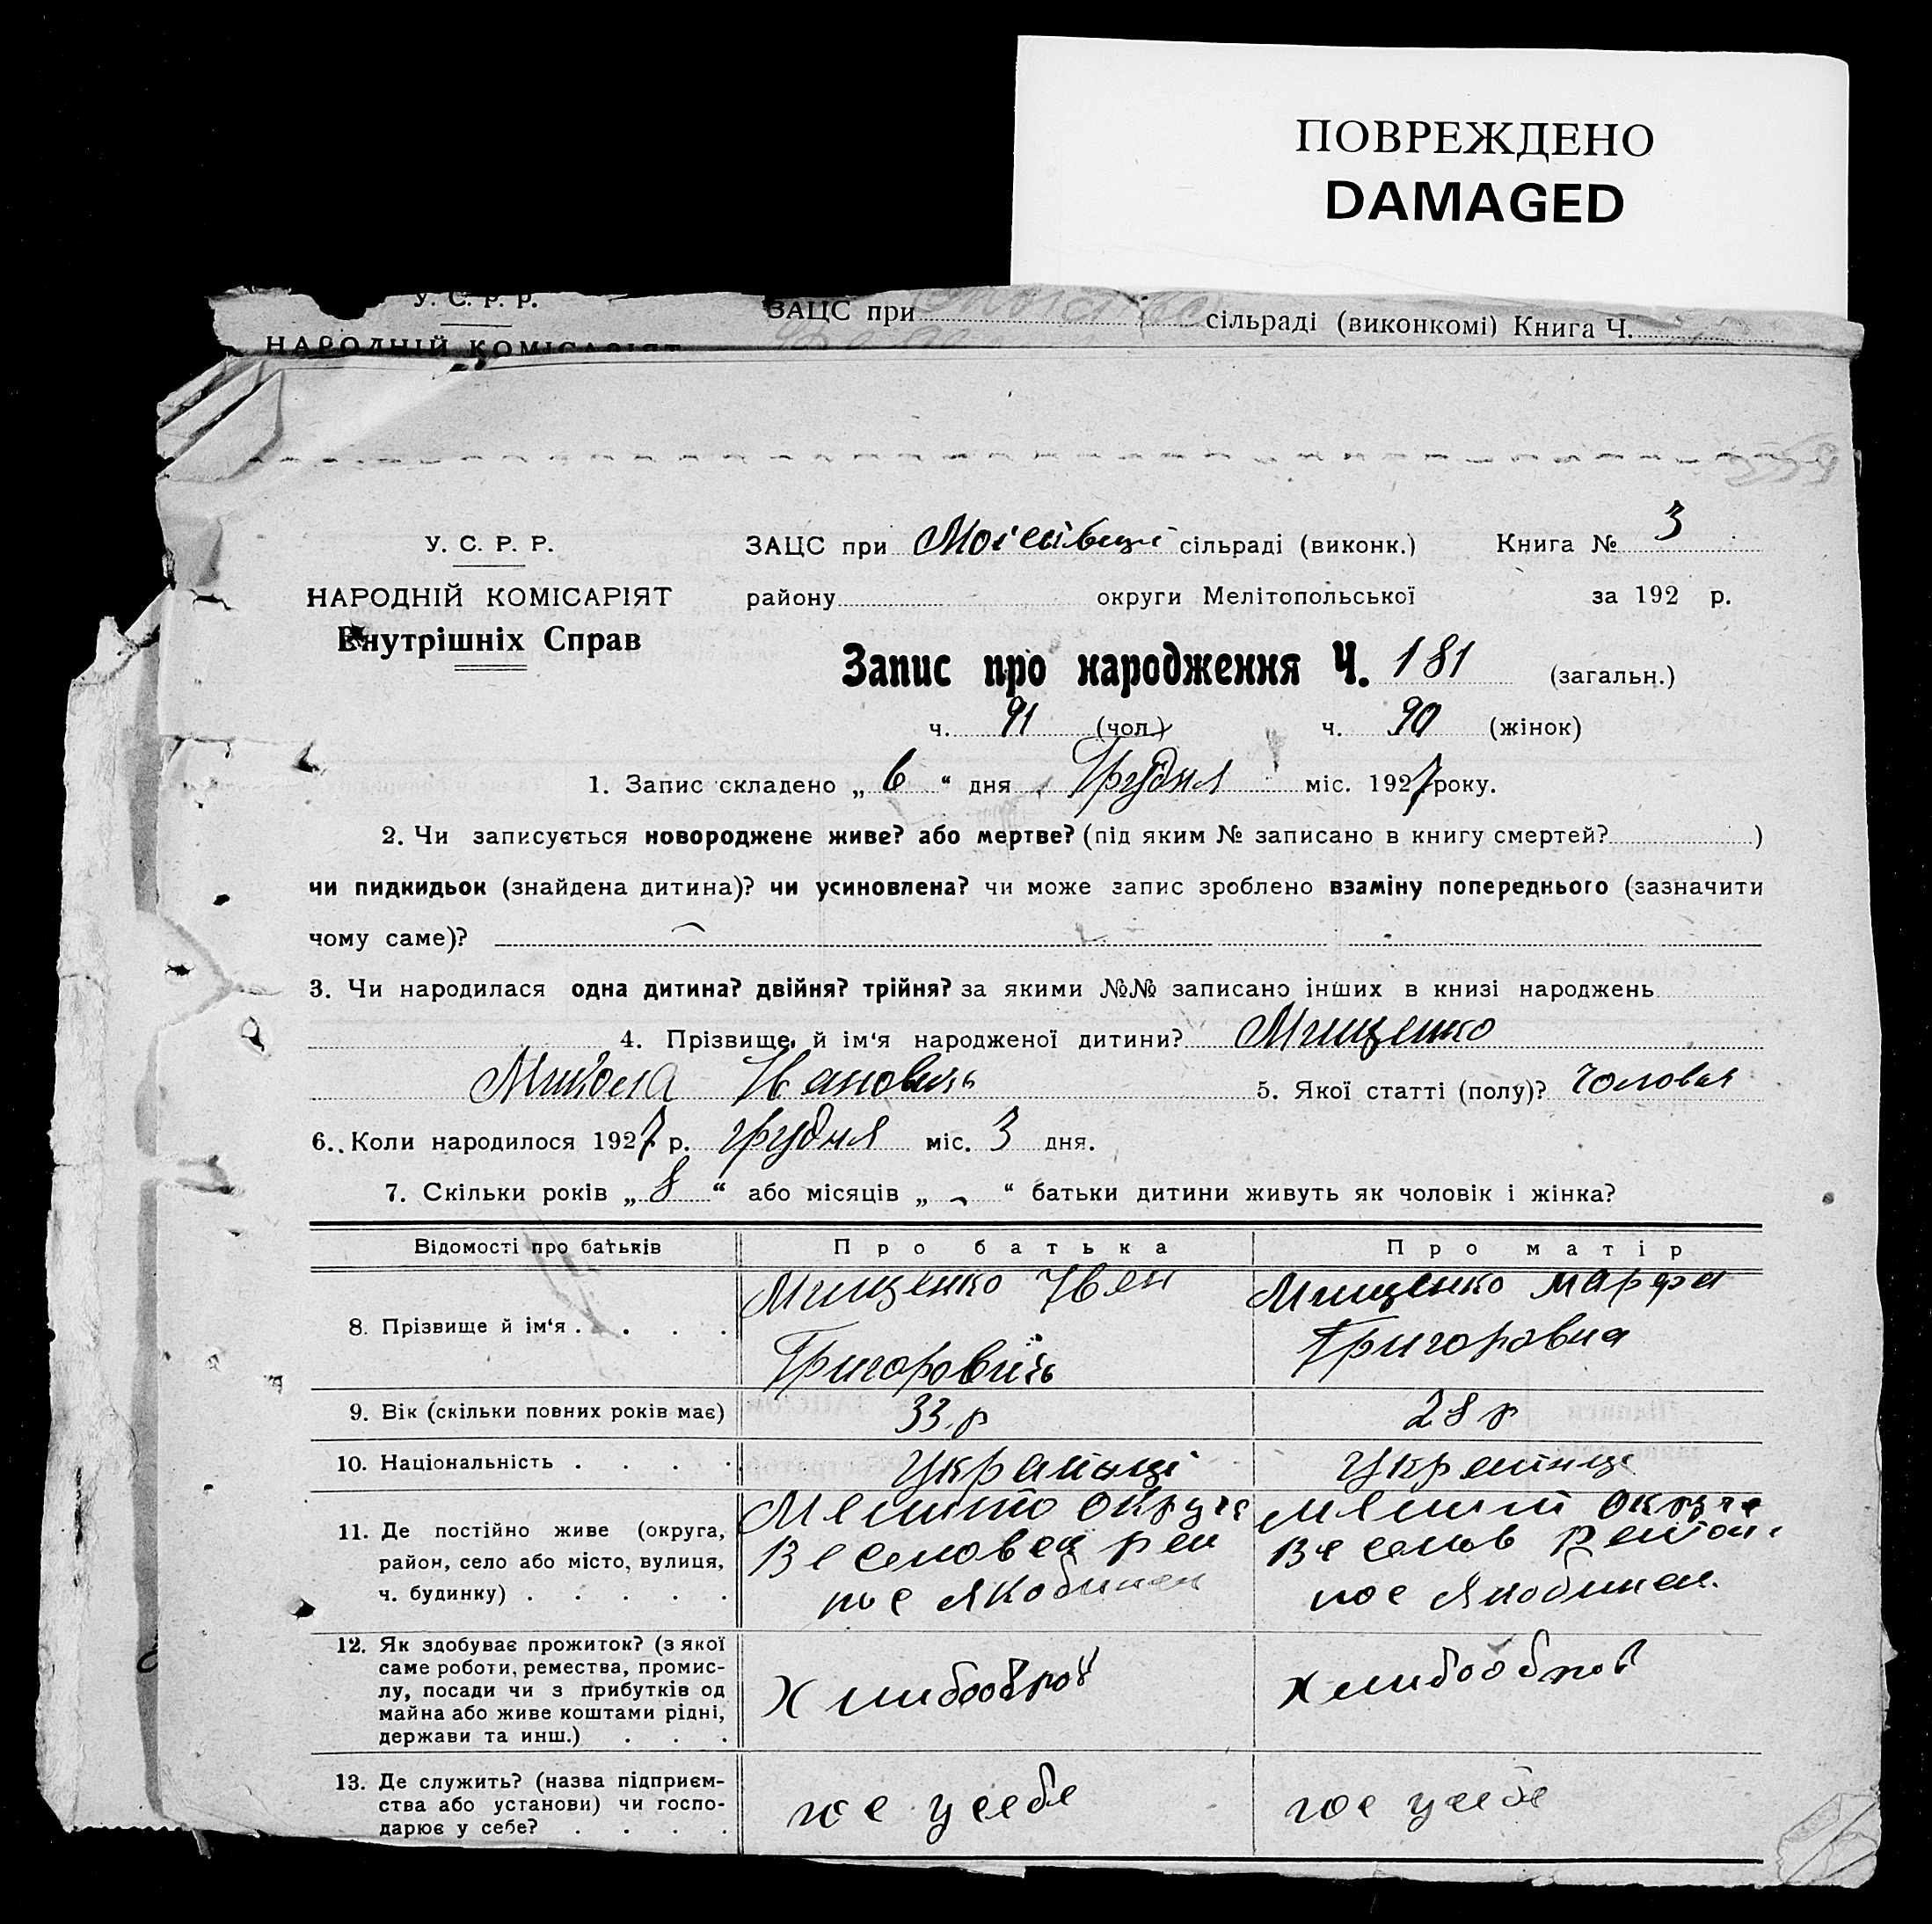 ПОВРЕЖДЕНО
DAMAGED
У. С. Р. Р.
ЗАЦС при сільраді (виконкомі) Книга Ч.
НАРОДНІЙ КОМІСАРІЯТ
У. С. Р. Р.
ЗАЦС при сільраді (виконк.) Книга № 3
НАРОДНІЙ КОМІСАРІЯТ
району округи Мелітопольської за 192 р.
Внутрішніх Справ
Запис про народження Ч. 181 (загальн.)
ч. 91 (чол.) ч. 90 (жінок)
1. Запис складено „ 6 “ дня Грудня міс. 1927 року.
2. Чи записується новороджене живе? або мертве? (під яким № записано в книгу смертей? )
чи пидкидьок (знайдена дитина)? чи усиновлена? чи може запис зроблено взаміну попереднього (зазначити
чому саме)?
3. Чи народилася одна дитина? двійня? трійня? за якими №№ записано інших в книзі народжень
4. Прізвище й ім'я народженої дитини? Мищенко
Микола Иванович 5. Якої статті (полу)? Чоловья
6. Коли народилося 1927 р. грудня міс. 3 дня.
7. Скільки років „ 8 “ або місяців „ - “ батьки дитини живуть як чоловік і жінка?
Відомості про батьків Про батька Про матір
8. Прізвище й ім'я . . . . .
Мищенко Иван
Григоровичь
Мищенко Марфа
Григоровна
9. Вік (скільки повних років має) 33 р 28 р
10. Національність . . . . . Українці Українці
11. Де постійно живе (округа,
район, село або місто, вулиця,
ч. будинку) . . . . .
Мелито округа
Веселовск рай
пос Якобинск
Мелит округа
Веселов район
пос Якобинск
12. Як здобуває прожиток? (з якої
саме роботи, ремества, промис-
лу, посади чи з прибутків од
майна або живе коштами рідні,
держави та инш.) . . .
Хлибоороб
Хлибоороб
13. Де служить? (назва підприєм-
ства або установи) чи госпо-
дарює у себе? . . . .
гос у себе
гос у себе